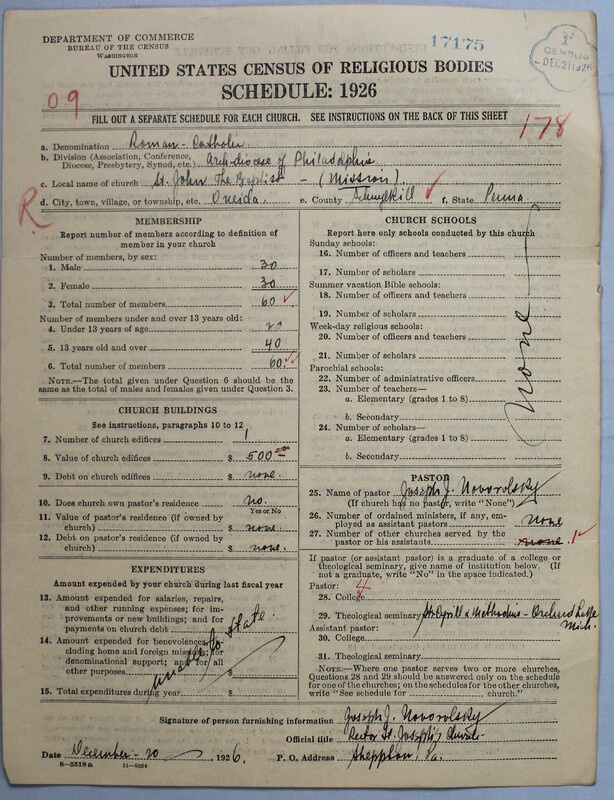 DEPARTMENT OF COMMERCE
BUREAU OF THE CENSUS
WASHINGTON
17175
CENSUS
DEC 21 1926
UNITED STATES CENSUS OF RELIGIOUS BODIES
SCHEDULE: 1926
09
FILL OUT A SEPARATE SCHEDULE FOR EACH CHURCH. SEE INSTRUCTIONS ON THE BACK OF THIS SHEET
178
a. Denomination Roman-Catholic
b. Division (Association, Conference, Diocese, Presbytery, Synod, etc.) Arch-diocese of Philadelphia
c. Local name of church St. John The Baptist - (Mission)
d. City, town, village, or township, etc. Oneida e. County Schuylkill f. State Penna
R
MEMBERSHIP
Report number of members according to definition of member in your church
Number of members, by sex:
1. Male 30
2. Female 30
3. Total number of members 60
Number of members under and over 13 years old:
4. Under 13 years of age 20
5. 13 years old and over 40
6. Total number of members 60
NOTE.—The total given under Question 6 should be the same as the total of males and females given under Question 3.
CHURCH BUILDINGS
See instructions, paragraphs 10 to 12
7. Number of church edifices 1
8. Value of church edifices $ 500
9. Debt on church edifices $ none
10. Does church own pastor's residence no.
Yes or No
11. Value of pastor's residence (if owned by church) $ none.
12. Debt on pastor's residence (if owned by church) $ none.
EXPENDITURES
Amount expended by your church during last fiscal year
13. Amount expended for salaries, repairs, and other running expenses; for improvements or new buildings; and for payments on church debt $
14. Amount expended for benevolences, including home and foreign missions; for denominational support; and for all other purposes $
unable to state.
15. Total expenditures during year $
CHURCH SCHOOLS
Report here only schools conducted by this church
Sunday schools:
16. Number of officers and teachers
17. Number of scholars
Summer vacation Bible schools:
18. Number of officers and teachers
19. Number of scholars
Week-day religious schools:
20. Number of officers and teachers
21. Number of scholars
Parochial schools:
22. Number of administrative officers
23. Number of teachers—
a. Elementary (grades 1 to 8)
b. Secondary
24. Number of scholars—
a. Elementary (grades 1 to 8)
b. Secondary
none
PASTOR
25. Name of pastor Joseph J. Novorolsky
(If church has no pastor, write "None")
26. Number of ordained ministers, if any, employed as assistant pastors none
27. Number of other churches served by the pastor or his assistants none. 1
If pastor (or assistant pastor) is a graduate of a college or theological seminary, give name of institution below. (If not a graduate, write "No" in the space indicated.)
Pastor:
28. College 4
29. Theological seminary St. Cyrill & Methodius - Orchard Lake Mich.
Assistant pastor:
30. College
31. Theological seminary
NOTE.—Where one pastor serves two or more churches, Questions 28 and 29 should be answered only on the schedule for one of the churches; on the schedules for the other churches, write "See schedule for church."
Signature of person furnishing information Joseph J. Novorolsky
Official title Rector St. Joseph's Church
Date December - 20, 1926. P. O. Address Sheppton, Pa.
8-5518a 11-9034